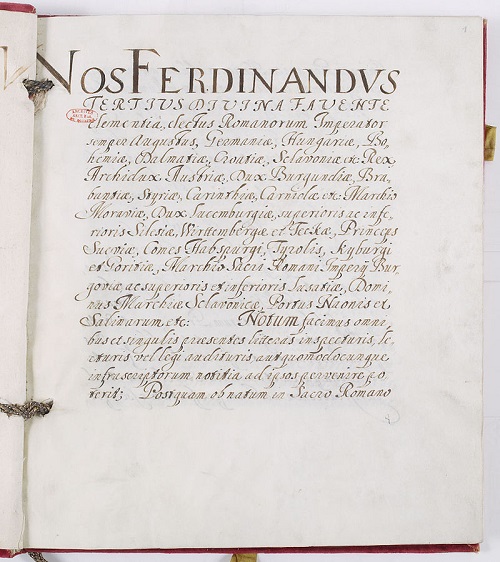 NOS FERDINANDVS
TERTIVS DIVINA FAVENTE
clementia, electus Romanorum Imperator
semper Augustus, Germaniæ, Hungariæ, Bo,
hemiæ, Dalmatiæ, Croatiæ, Sclavoniæ etc. Rex
Archidux Austriæ, Dux Burgundiæ, Bra,
bantiæ, Styriæ, Carinthiæ, Carniolæ etc. Marchio
Moraviæ, Dux Lucemburgiæ, superioris ac infe,
rioris Silesiæ, Wirttembergæ et Teckæ, Princeps
Sueviæ, Comes Habspurgi, Tyrolis, Kyburgi
et Goritiæ, Marchio Sacri Romani Imperij Bur,
goviæ ac superioris et inferioris Lusatiæ, Domi,
nus Marchiæ Sclavonicæ, Portus Naonis et
Salinarum etc: Notum facimus omni,
bus et singulis præsentes litteras inspecturis, le,
cturis vel legi audituris aut quomodocunque
infrascriptorum notitia ad ipsos pervenire po,
terit; Postquam ob natum in Sacro Romano